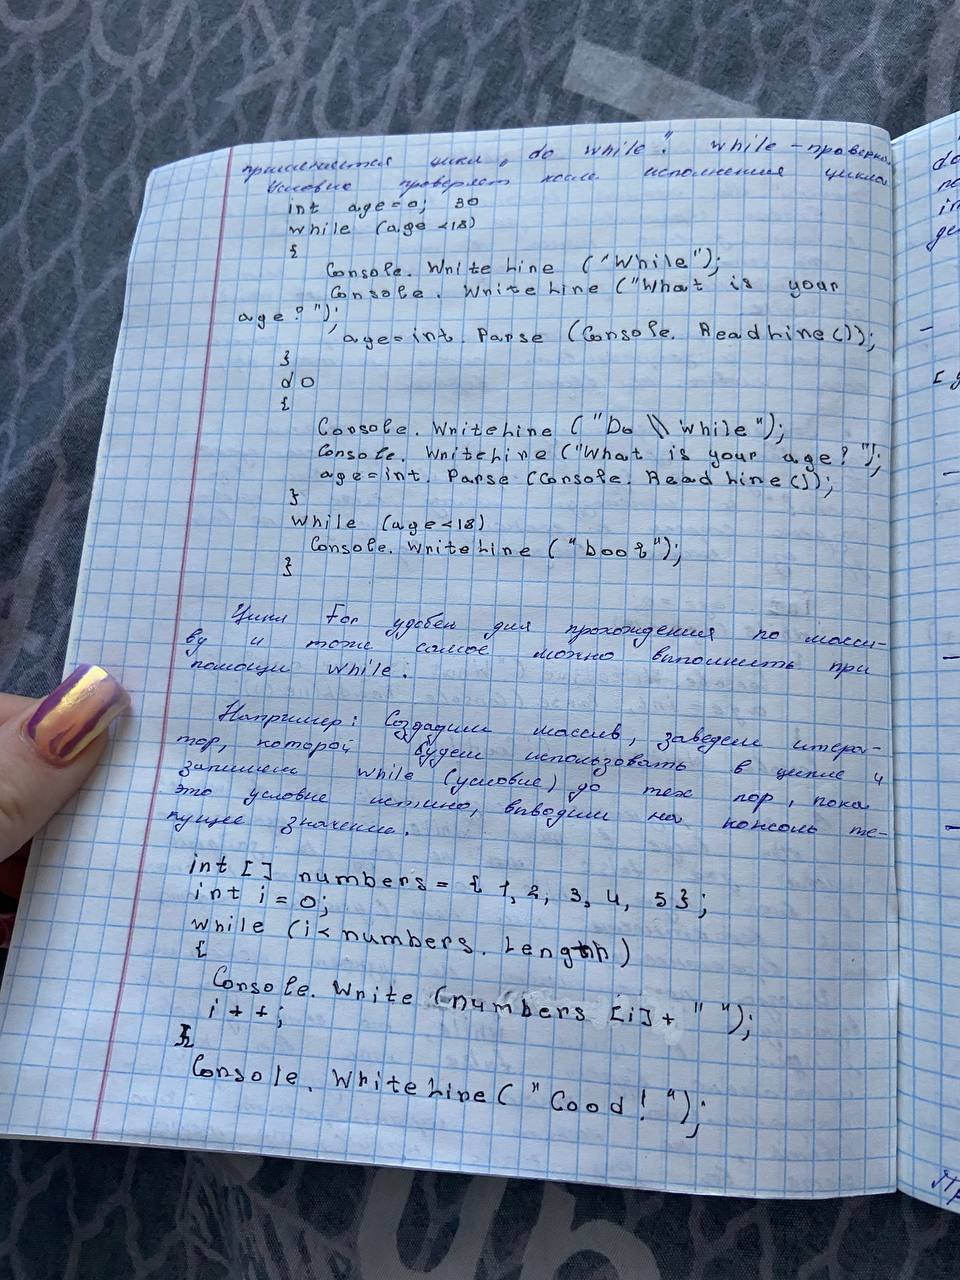 применяется цикл „do while". while – проверка
Условие проверяет после исполнения цикла
int age=0; 30
while (age <18)
{
Console. Write Line ("While");
Console. Write Line ("What is your
age?");
age=int. Parse (Console. Read Line ());
}
do
{
Console. WriteLine ("Do \\ While");
Console. WriteLine ("What is your age?");
age=int. Parse (Console. Read Line ());
}
while (age<18)
Console. Write Line (" ");
}
Цикл For удобен для прохождения по масси-
ву и тоже самое можно выполнить при
помощи while.
Например: Создадим массив, заведем итера-
тор, которой будем использовать в цикле и
запишем while (условие) до тех пор, пока
это условие истинно, выводим на консоль те-
кущее значение.
int [ ] numbers = { 1, 2, 3, 4, 5 };
int i = 0;
while (i < numbers. Length)
{
Console. Write (numbers [i] + " ");
i + +;
}
Console. Write Line (" Cood! ");